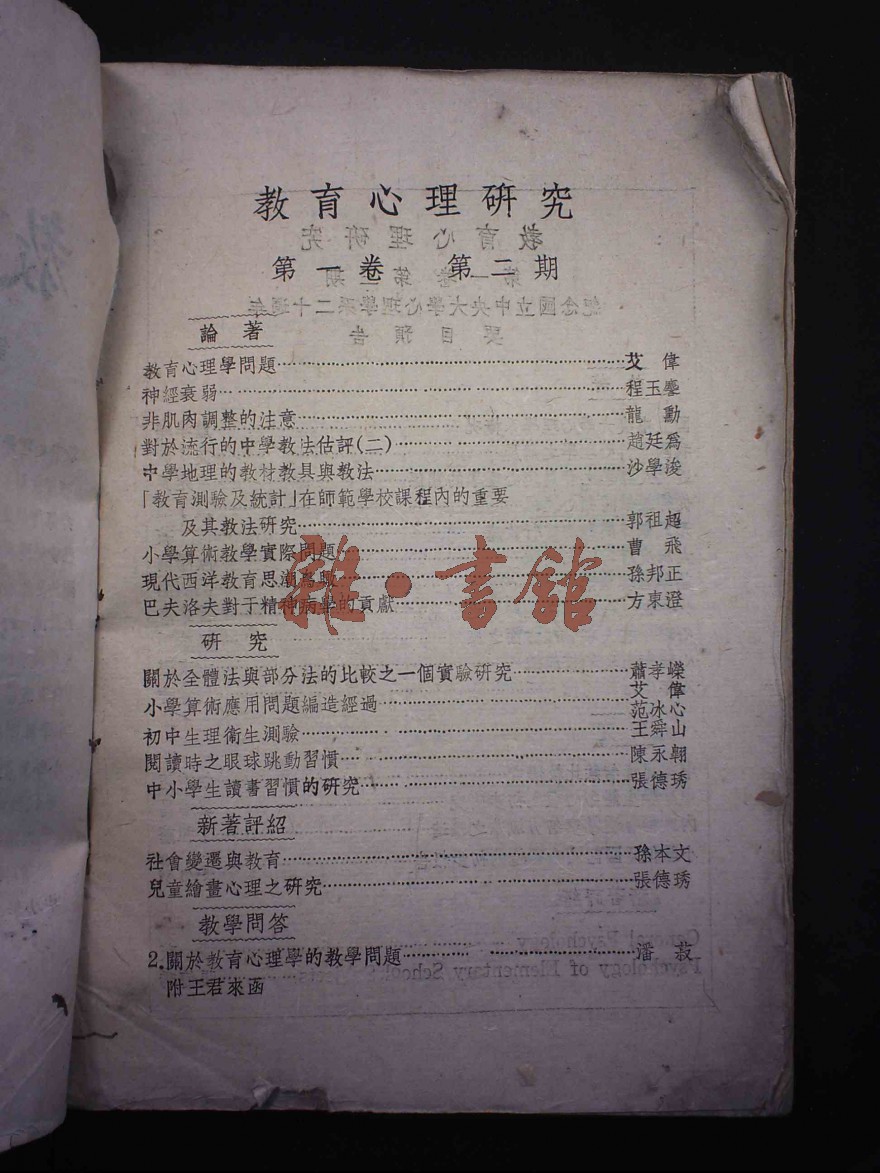 教育心理研究
第一卷 第二期
論著
教育心理學問題 艾偉
神經衰弱 程玉麐
非肌肉調整的注意 龍勳
對於流行的中學教法估評(二) 趙廷爲
中學地理的教材教具與教法 沙學浚
「教育測驗及統計」在師範學校課程內的重要
及其教法研究 郭祖超
小學算術教學實際問題 曹飛
現代西洋教育思潮鳥瞰 孫邦正
巴夫洛夫對于精神病學的貢獻 方東澄
研究
關於全體法與部分法的比較之一個實驗研究 蕭孝嶸
艾偉
小學算術應用問題編造經過 范冰心
初中生理衞生測驗 王舜山
閱讀時之眼球跳動習慣 陳永翺
中小學生讀書習慣的研究 張德琇
新著評紹
社會變遷與教育 孫本文
兒童繪畫心理之研究 張德琇
教學問答
2.關於教育心理學的教學問題 潘菽
附王君來函
雜·書館